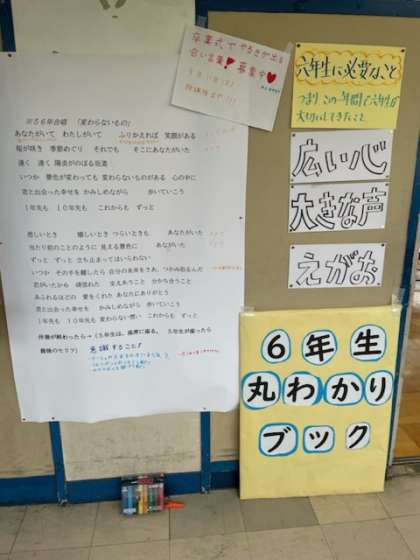 卒業式でやる気が出る
合い言葉 募集中
六年生に必要なこと
つまりこの一年間で六年生が
大切にしてきたこと
広い心
大きな声
えがお
※56年合唱 「変わらないもの」
あなたがいて わたしがいて ふりかえれば 笑顔がある
桜が咲き 季節めぐり それでも そこにあなたがいた
遠く 遠く 陽炎がのぼる坂道
いつか 景色が変わっても 変わらないものがある 心の中に
君と出会った幸せを かみしめながら 歩いていこう
1年先も 10年先も これからも ずっと
悲しいとき 嬉しいとき つらいときも あなたがいた
当たり前のことのように 見える景色に あなたがいた
ずっと ずっと 立ち止まってはいられない
いつか その手を離したら 自分の未来をきれ
君がいたから 頑張れた 支えあうこと 分かち合うこと
あふれるほどの 愛をくれた あなたにありがとう
君と出会った幸せを かみしめながら 歩いていこう
1年先も 10年先も 変わらない想い これからも ずっと
伴奏が終わったら→(5年生は、座席に座る。 5年生が座ったら
最後のセリフ)
意識すること!
6年生
丸わかり
ブック